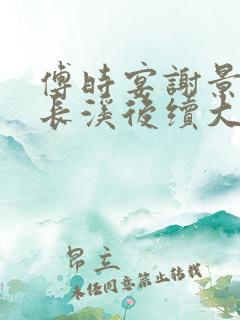 傅時宴謝景
長溪後續大
昂立
未经同意禁止转载